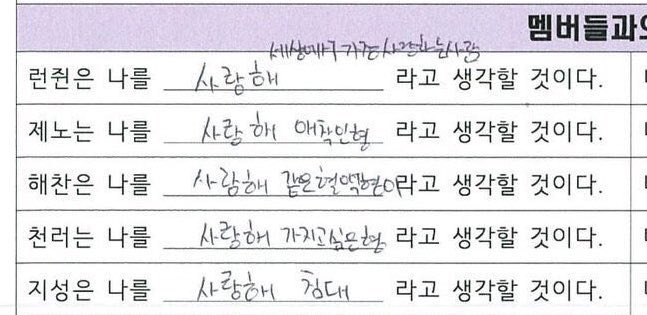 멤버들과의
세상에서 가장 사랑하는 사람
런쥔은 나를 사랑해 라고 생각할 것이다.
제노는 나를 사랑해 애착인형 라고 생각할 것이다.
해찬은 나를 사람해 같은혈액형이라고 생각할 것이다.
천러는 나를 사랑해 가지고싶은형 라고 생각할 것이다.
지성은 나를 사랑해 침대 라고 생각할 것이다.